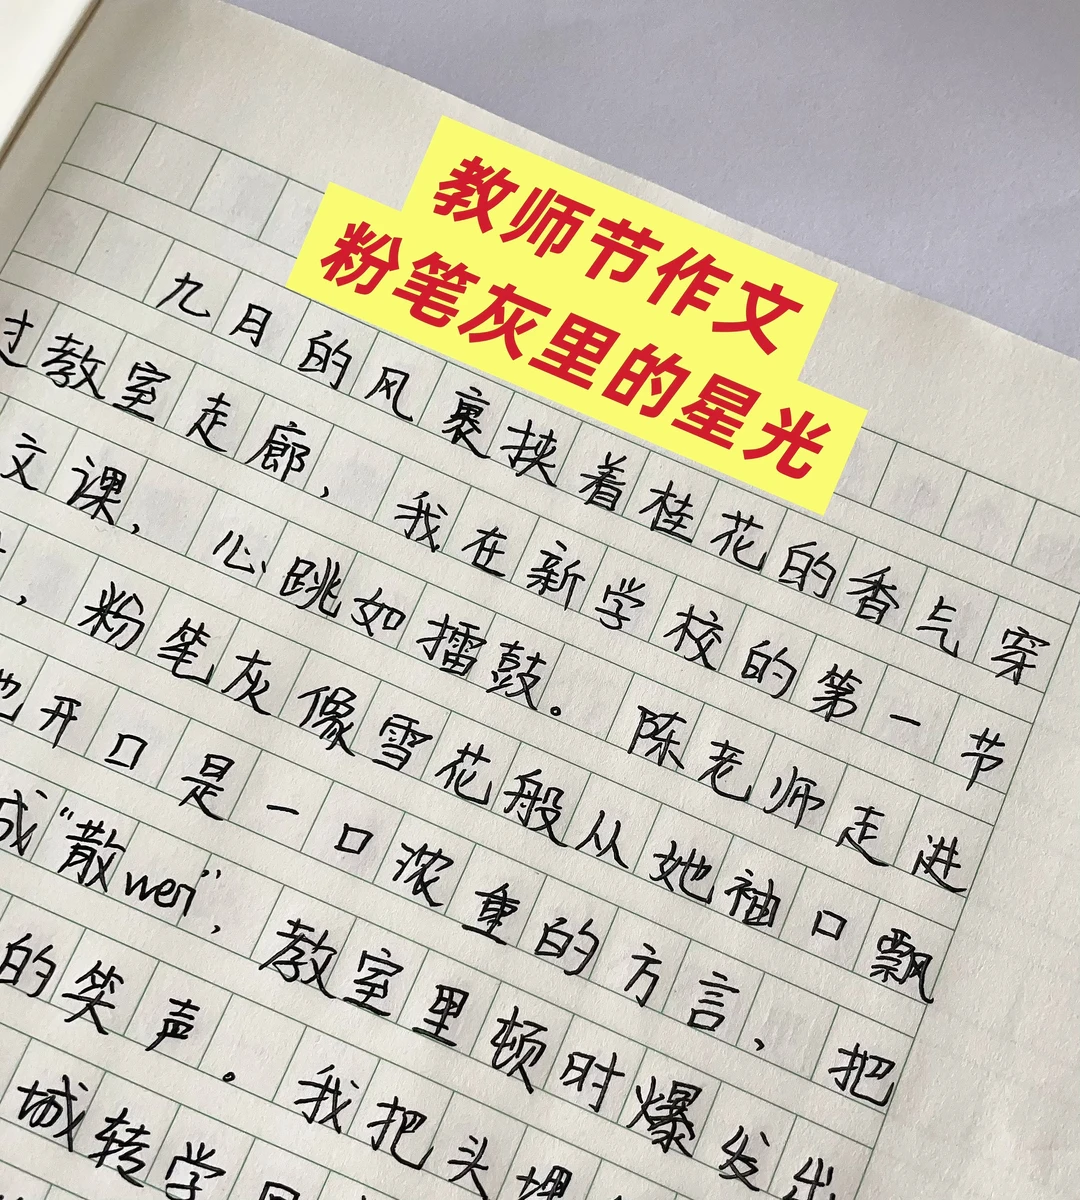 教师节作文
粉笔灰里的星光
九月的风裹挟着桂花的香气穿
过教室走廊，我在新学校的第一节
文课，心跳如擂鼓。陈老师走进
，粉笔灰像雪花般从她袖口飘
她开口是一口浓重的方言，把
成“散wen”，教室里顿时爆发出
的笑声。我把头埋
城转学